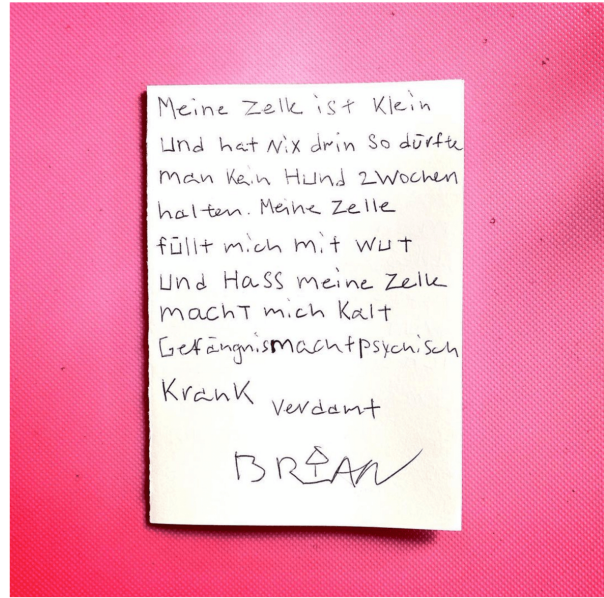 Meine Zelle ist Klein
Und hat Nix drin So dürfte
man Kein Hund 2 Wochen
halten. Meine Zelle
füllt mich mit Wut
Und Hass meine Zelle
macht mich Kalt
Gefängnis macht psychisch
Krank verdamt
BRIAN